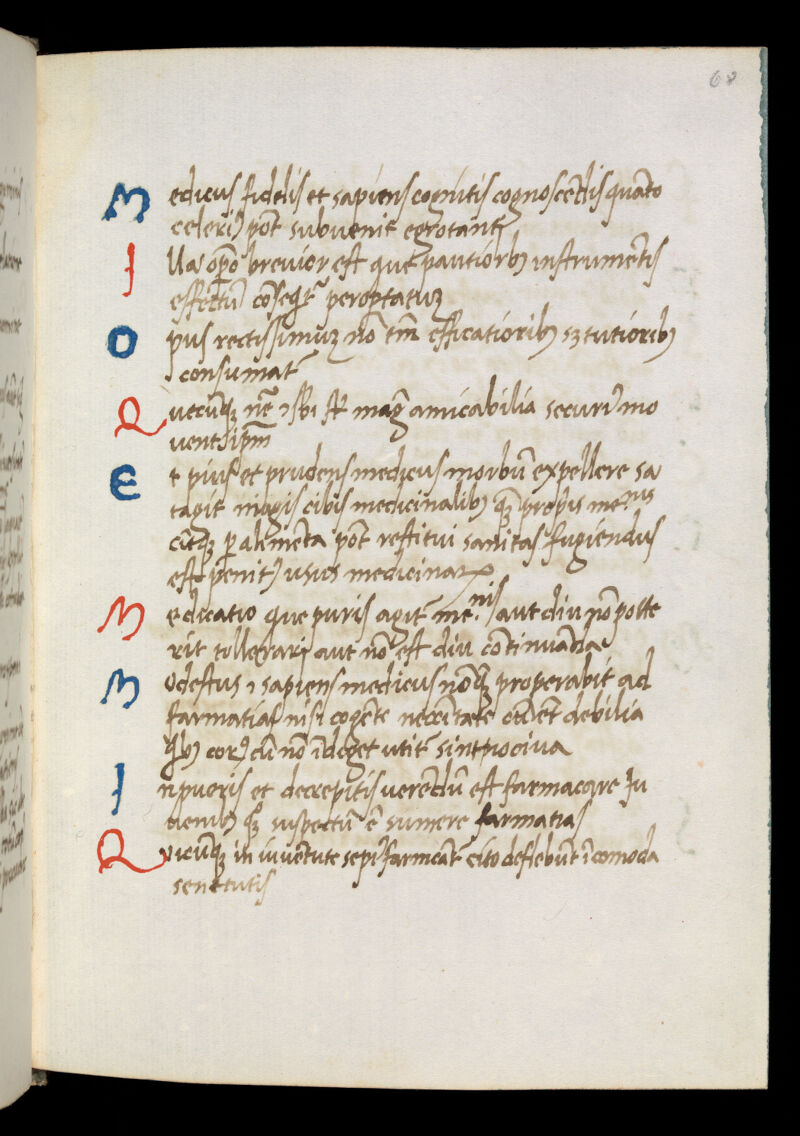 68
Medicus fidelis et sapiens cognitis cognoscēdis quāto
celeriꝰ põt subvenit egrotanti
Illa opõ brevior est que pautiorbꝫ instrumētis
effectū cōseqr̃t peroptatuꝫ
Opus rectissimuꝫ nõ tm̃ efficatioribꝫ sꝫ tutioribꝫ
consumat̃
Quecūqꝫ amicabilia securiꝰ mo
vent ip̃m
Et pius et prudens medicus morbū expellere sa
tagit magis cibis medicinalibꝫ
citqꝫ p alimēta põt restitui sanitas fugiendus
est penitꝰ usus medicinaꝝ
Medicatio que puris agit̃ aut diu nõ poste
rit tollerari aut nõ est diu cōtinuāda
Modestus ⁊ sapiens medicus nõqꝫ properabit ad
farmatias nisi cogēte necc̃itate debilia
qbꝫ corꝰ cū nõ īdeget utit̃ sint nociva
In pueris et decrepitis verēdū est farmacare Iu
venibꝫ qꝫ suspectū ē sumere farmatias
Quicūqꝫ in iuvētute sepiꝰ farmcāt cito deflebūt īcomoda
senectutis